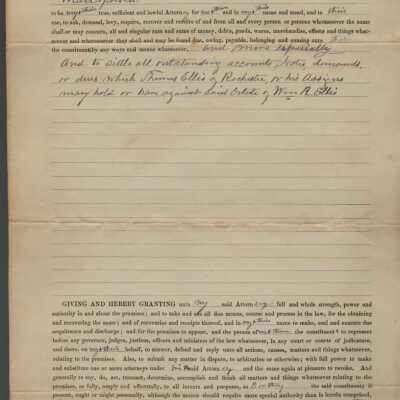 to be my & their true, sufficient and lawful Attorney, for me & them and in my & their name and stead, and to their
use, to ask, demand, levy, require, recover and receive of and from all and every person or persons whomsoever the same
shall or may concern, all and singular sum and sums of money, debts, goods, wares, merchandise, effects and things what-
soever and wheresoever they shall and may be found due, owing, payable, belonging and coming unto
the constituent by any ways and means whatsoever, and more especially
And to settle all outstanding accounts, notes, demands,
or dues which Thomas Ellis of Rochester, or his Assigns
may hold or have against said Estate of Wm R. Ellis
GIVING AND HEREBY GRANTING unto my said Attorney full and whole strength, power and
authority in and about the premises; and to take and use all due means, course and process in the law, for the obtaining
and recovering the same; and of recoveries and receipts thereof, and in my & their name to make, seal and execute due
acquittance and discharge; and for the premises to appear, and the person of me & them the constituent s to represent
before any governor, judges, justices, officers and ministers of the law whatsoever, in any court or courts of judicature,
and there, on my & their behalf, to answer, defend and reply unto all actions, causes, matters and things whatsoever,
relating to the premises. Also, to submit any matter in dispute, to arbitration or otherwise; with full power to make
and substitute one or more attorneys under said Attorney and the same again at pleasure to revoke. And
generally to say, do, act, transact, determine, accomplish and finish all matters and things whatsoever relating to the
premises, as fully, amply and effectually, to all intents and purposes, as I or they the said constituent s if
present, ought or might personally, although the matter should require more special authority than is herein comprised,